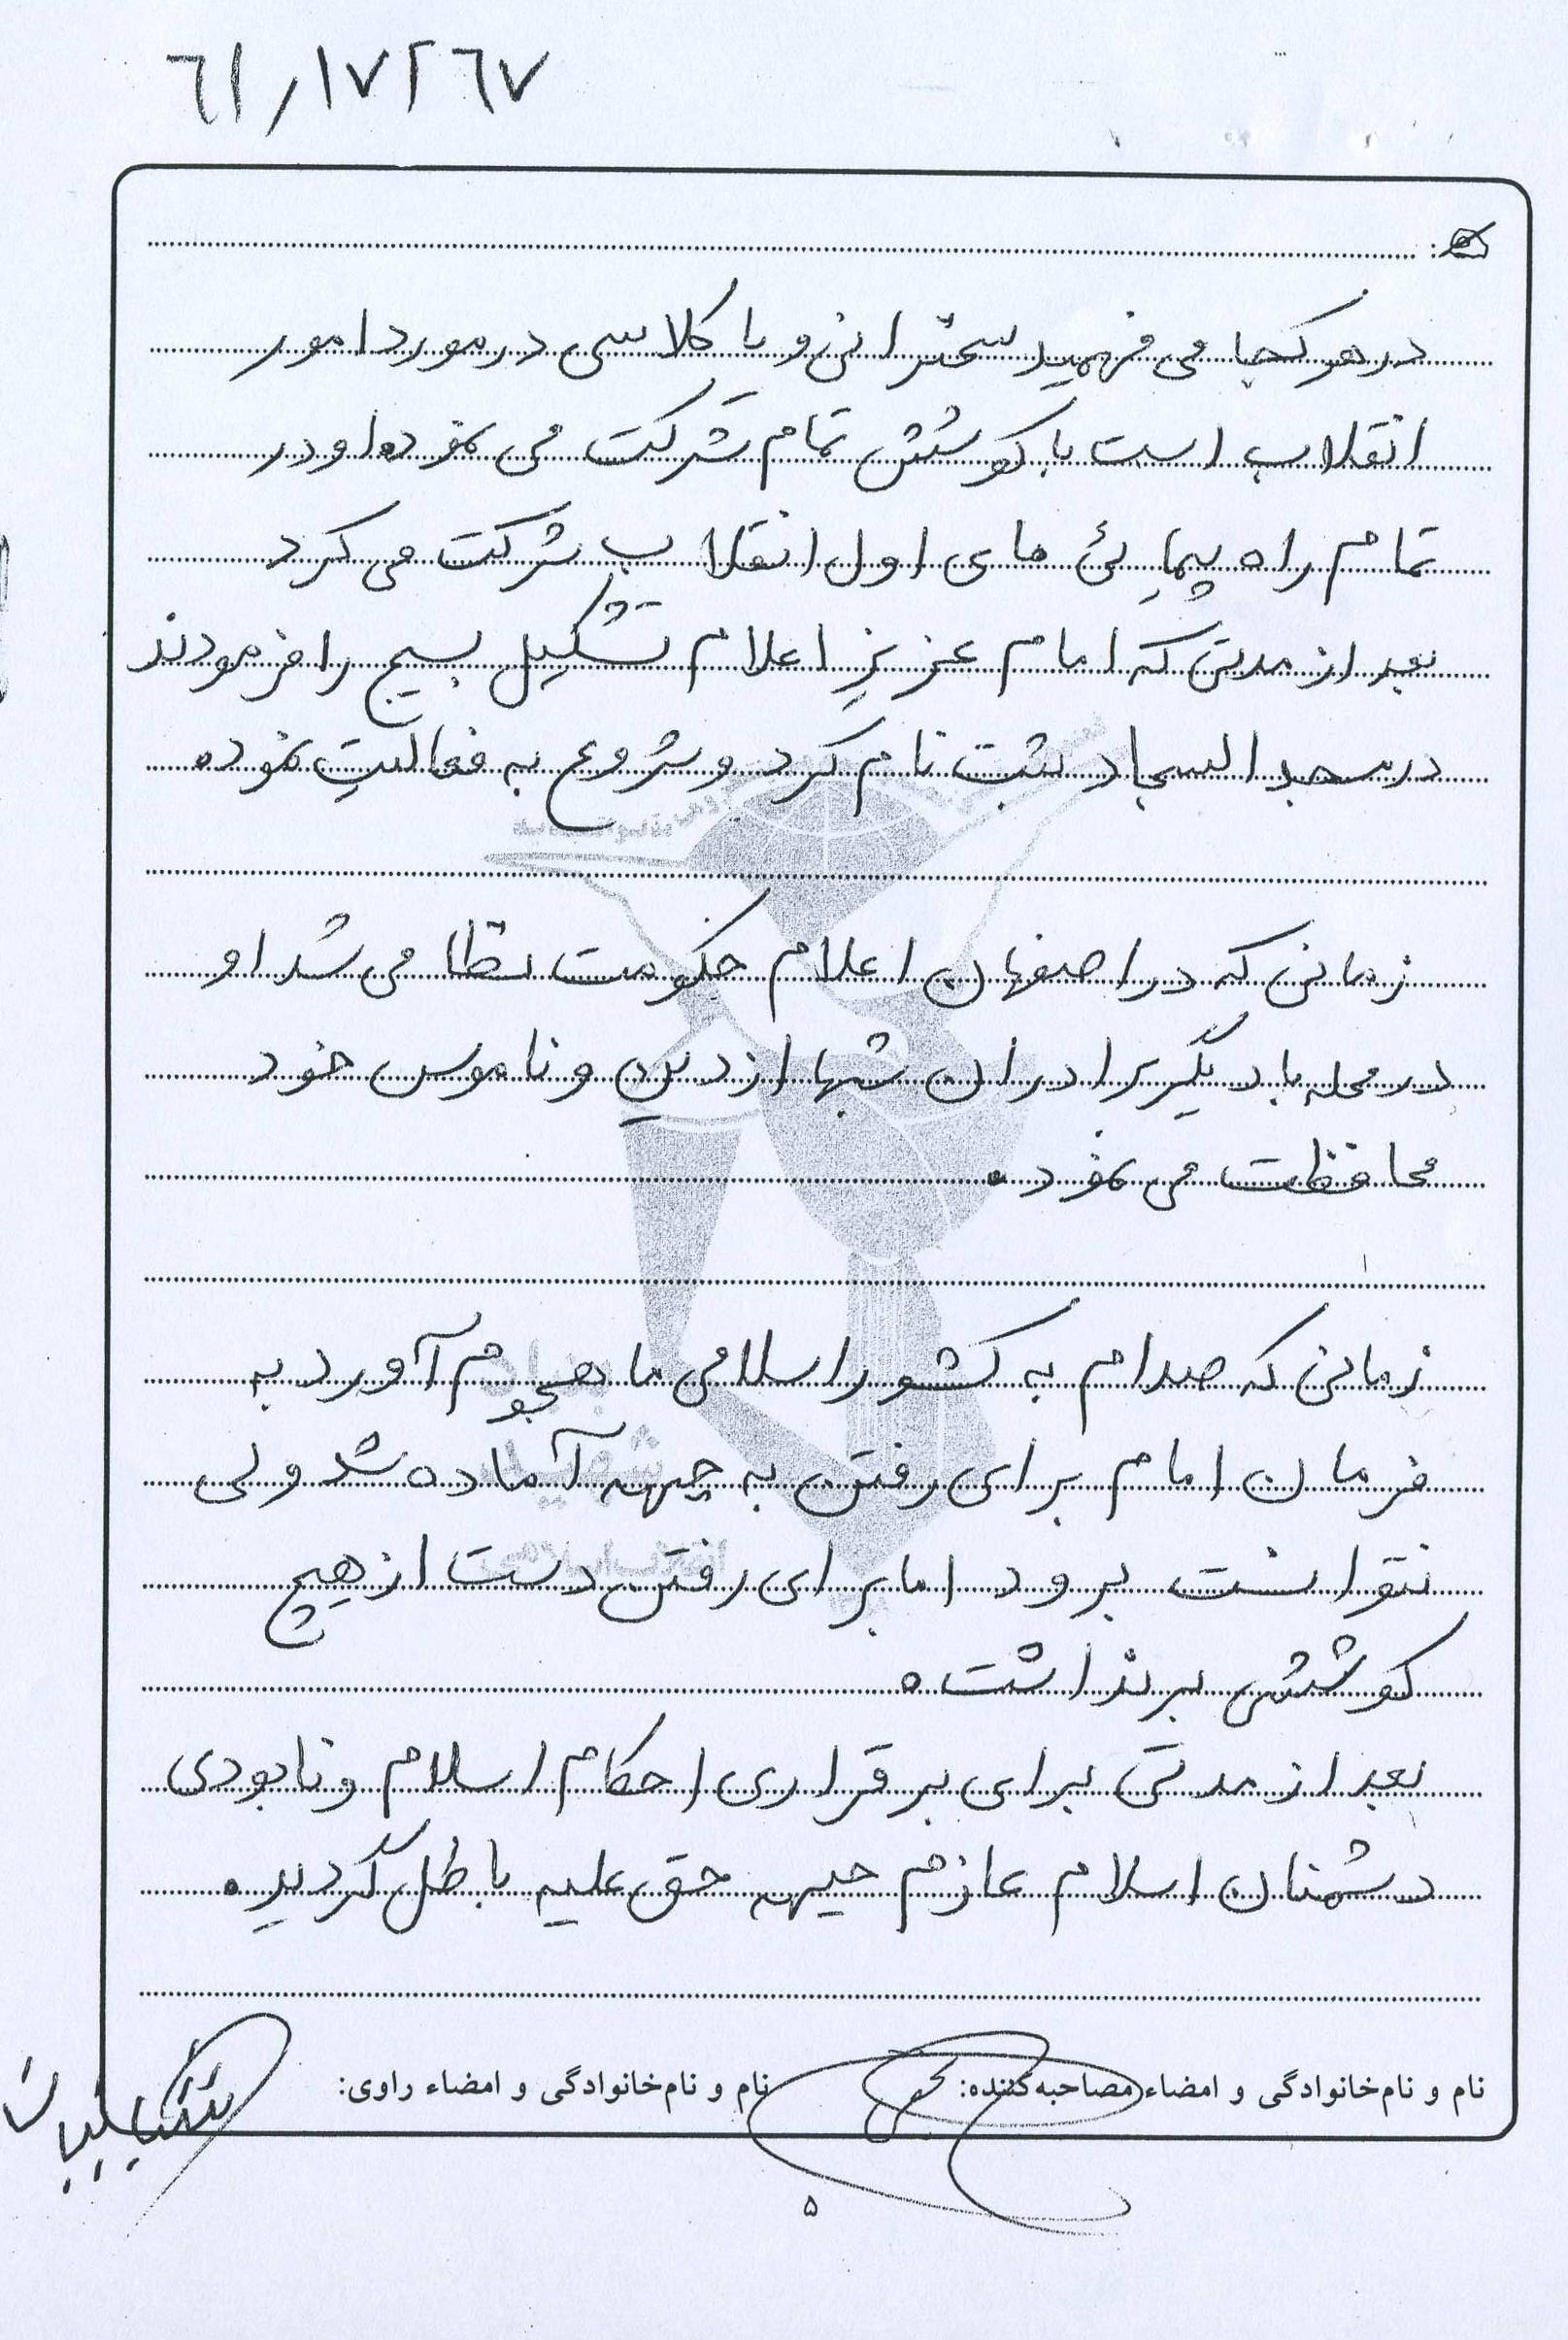 ٦١,١٧٢٦٧
در هر کجا می فهمید سخنرانی و یا کلاسی در مورد امور
انقلاب است با کوشش تمام شرکت می نمود. او در
تمام راه پیمائی های اول انقلاب شرکت می کرد
بعد از مدتی که امام عزیز اعلام تشکیل بسیج را فرمودند
در مسجد السجاد ثبت نام کرد و شروع به فعالیت نموده
زمانی که در اصفهان اعلام حکومت نظامی شد او
در محله با دیگر برادران شبها از دین و ناموس خود
محافظت می نمود.
زمانی که صدام به کشور اسلامی ما هجوم آورد به
فرمان امام برای رفتن به جبهه آماده شد ولی
نتوانست برود اما برای رفتن دست از هیچ
کوششی برنداشت.
بعد از مدتی برای برقراری احکام اسلام و نابودی
دشمنان اسلام عازم جبهه حق علیه باطل گردید.
نام و نام‌خانوادگی و امضاء مصاحبه‌کننده: نام و نام‌خانوادگی و امضاء راوی:
۵